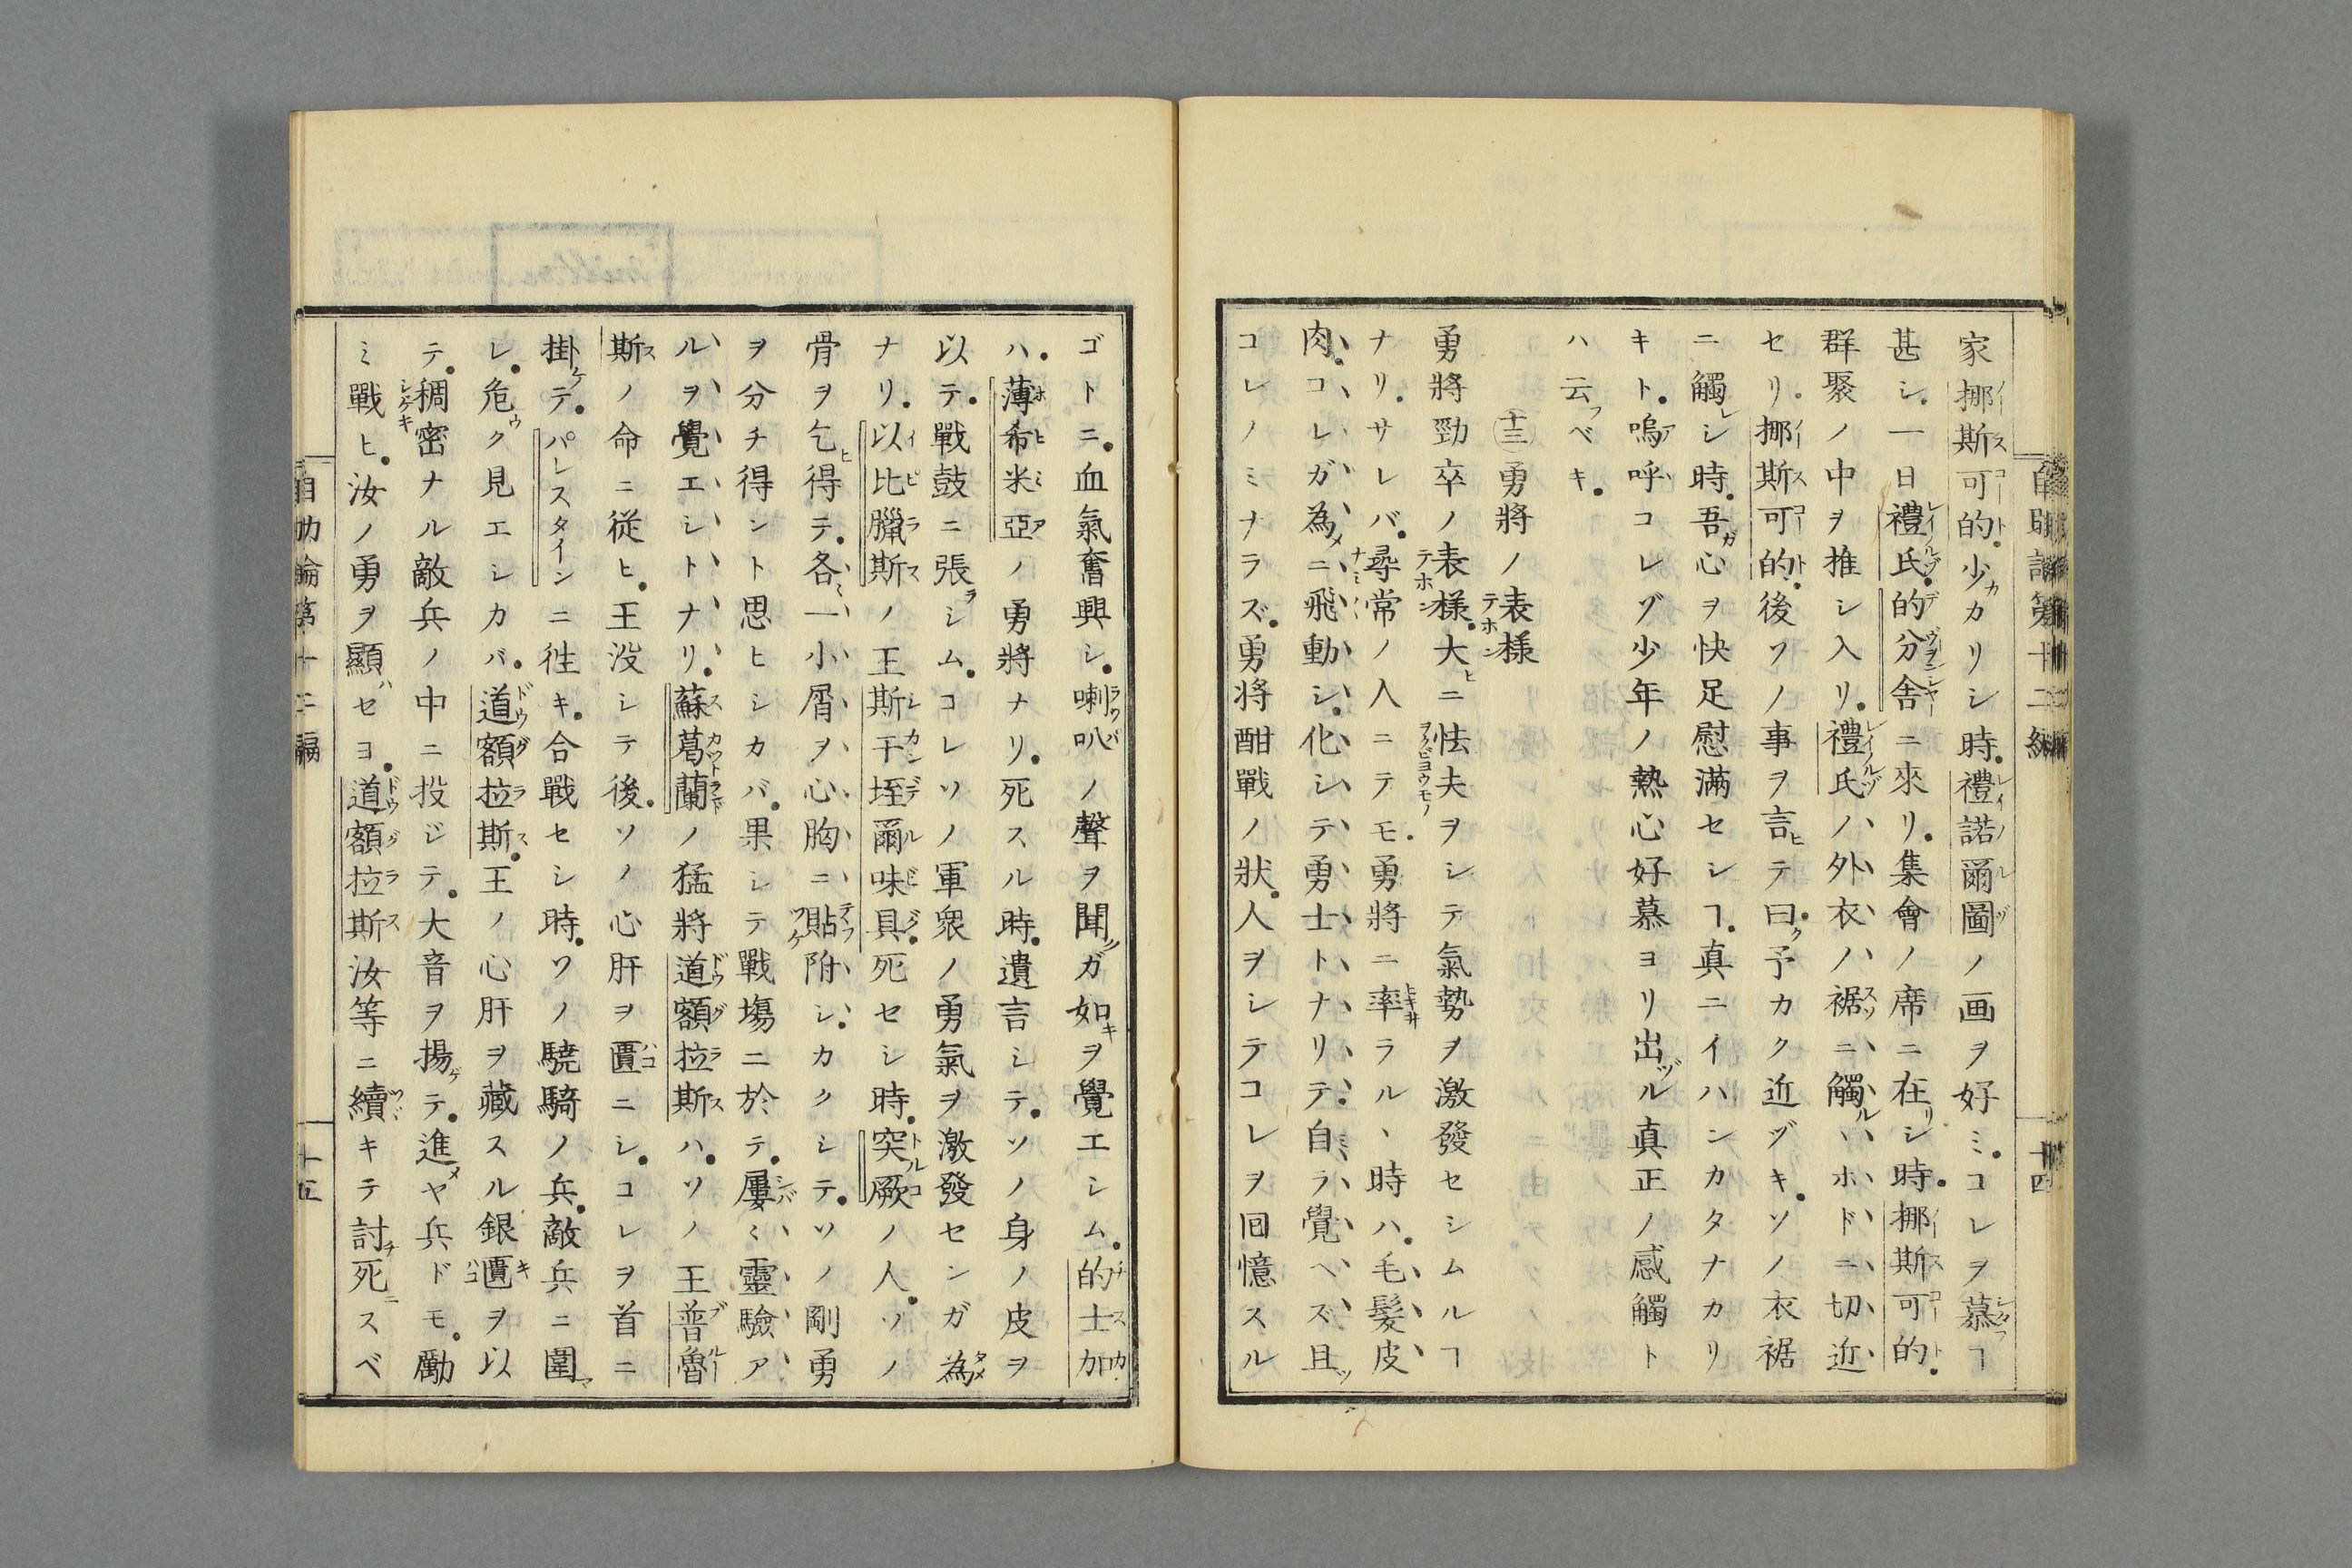 家挪斯可的少カリシ時禮諾爾圖ノ画ヲ好ミコレヲ慕フヿ
甚シ一日禮氏的分舎ニ來リ集會ノ席ニ在リシ時挪斯可的
群聚ノ中ヲ推シ入リ禮氏ノ外衣ノ裾ニ觸ルヽホドニ切近
セリ挪斯可的後ソノ事ヲ言ヒテ曰ク予カク近ヅキソノ衣裾
ニ觸レシ時吾ガ心ヲ快足慰滿セシヿ真ニイハンカタナカリ
キト嗚呼コレゾ少年ノ熱心好慕ヨリ出ヅル真正ノ感觸ト
ハ云フベキ
十三 勇將ノ表様
勇將勁卒ノ表様大ヒニ怯夫ヲシテ氣勢ヲ激發セシムルヿ
ナリサレバ尋常ノ人ニテモ勇將ニ率ラルヽ時ハ毛髮皮
肉コレガ為メニ飛動シ化シテ勇士トナリテ自ラ覺ヘズ且ツ
コレノミナラズ勇將酣戰ノ狀人ヲシテコレヲ回憶スル
自助論第十二編
十四
ゴトニ血氣奮興シ喇叭ノ聲ヲ聞クガ如キヲ覺エシム的士加
ハ薄希米亞ノ勇將ナリ死スル時遺言シテソノ身ノ皮ヲ
以テ戰鼓ニ張ラシムコレソノ軍衆ノ勇氣ヲ激發センガ為
ナリ以比臘斯ノ王斯干垤爾味具死セシ時突厥ノ人ソノ
骨ヲ乞ヒ得テ各〻一小屑ヲ心胸ニ貼附シカクシテソノ剛勇
ヲ分チ得ント思ヒシカバ果シテ戰塲ニ於テ屢〻靈驗ア
ルヲ覺エシトナリ蘇葛蘭ノ猛將道額拉斯ハソノ王普魯
斯ノ命ニ従ヒ王没シテ後ソノ心肝ヲ匱ニシコレヲ首ニ
掛ケテパレスタインニ徃キ合戰セシ時ソノ驍騎ノ兵敵兵ニ圍マ
レ危ウク見エシカバ道額拉斯王ノ心肝ヲ藏スル銀匱ヲ以
テ稠密ナル敵兵ノ中ニ投ジテ大音ヲ揚ゲテ進メヤ兵ドモ勵
ミ戰ヒ汝ノ勇ヲ顯ハセヨ道額拉斯汝等ニ續キテ討チ死ニスベ
自助論第十二編
十五